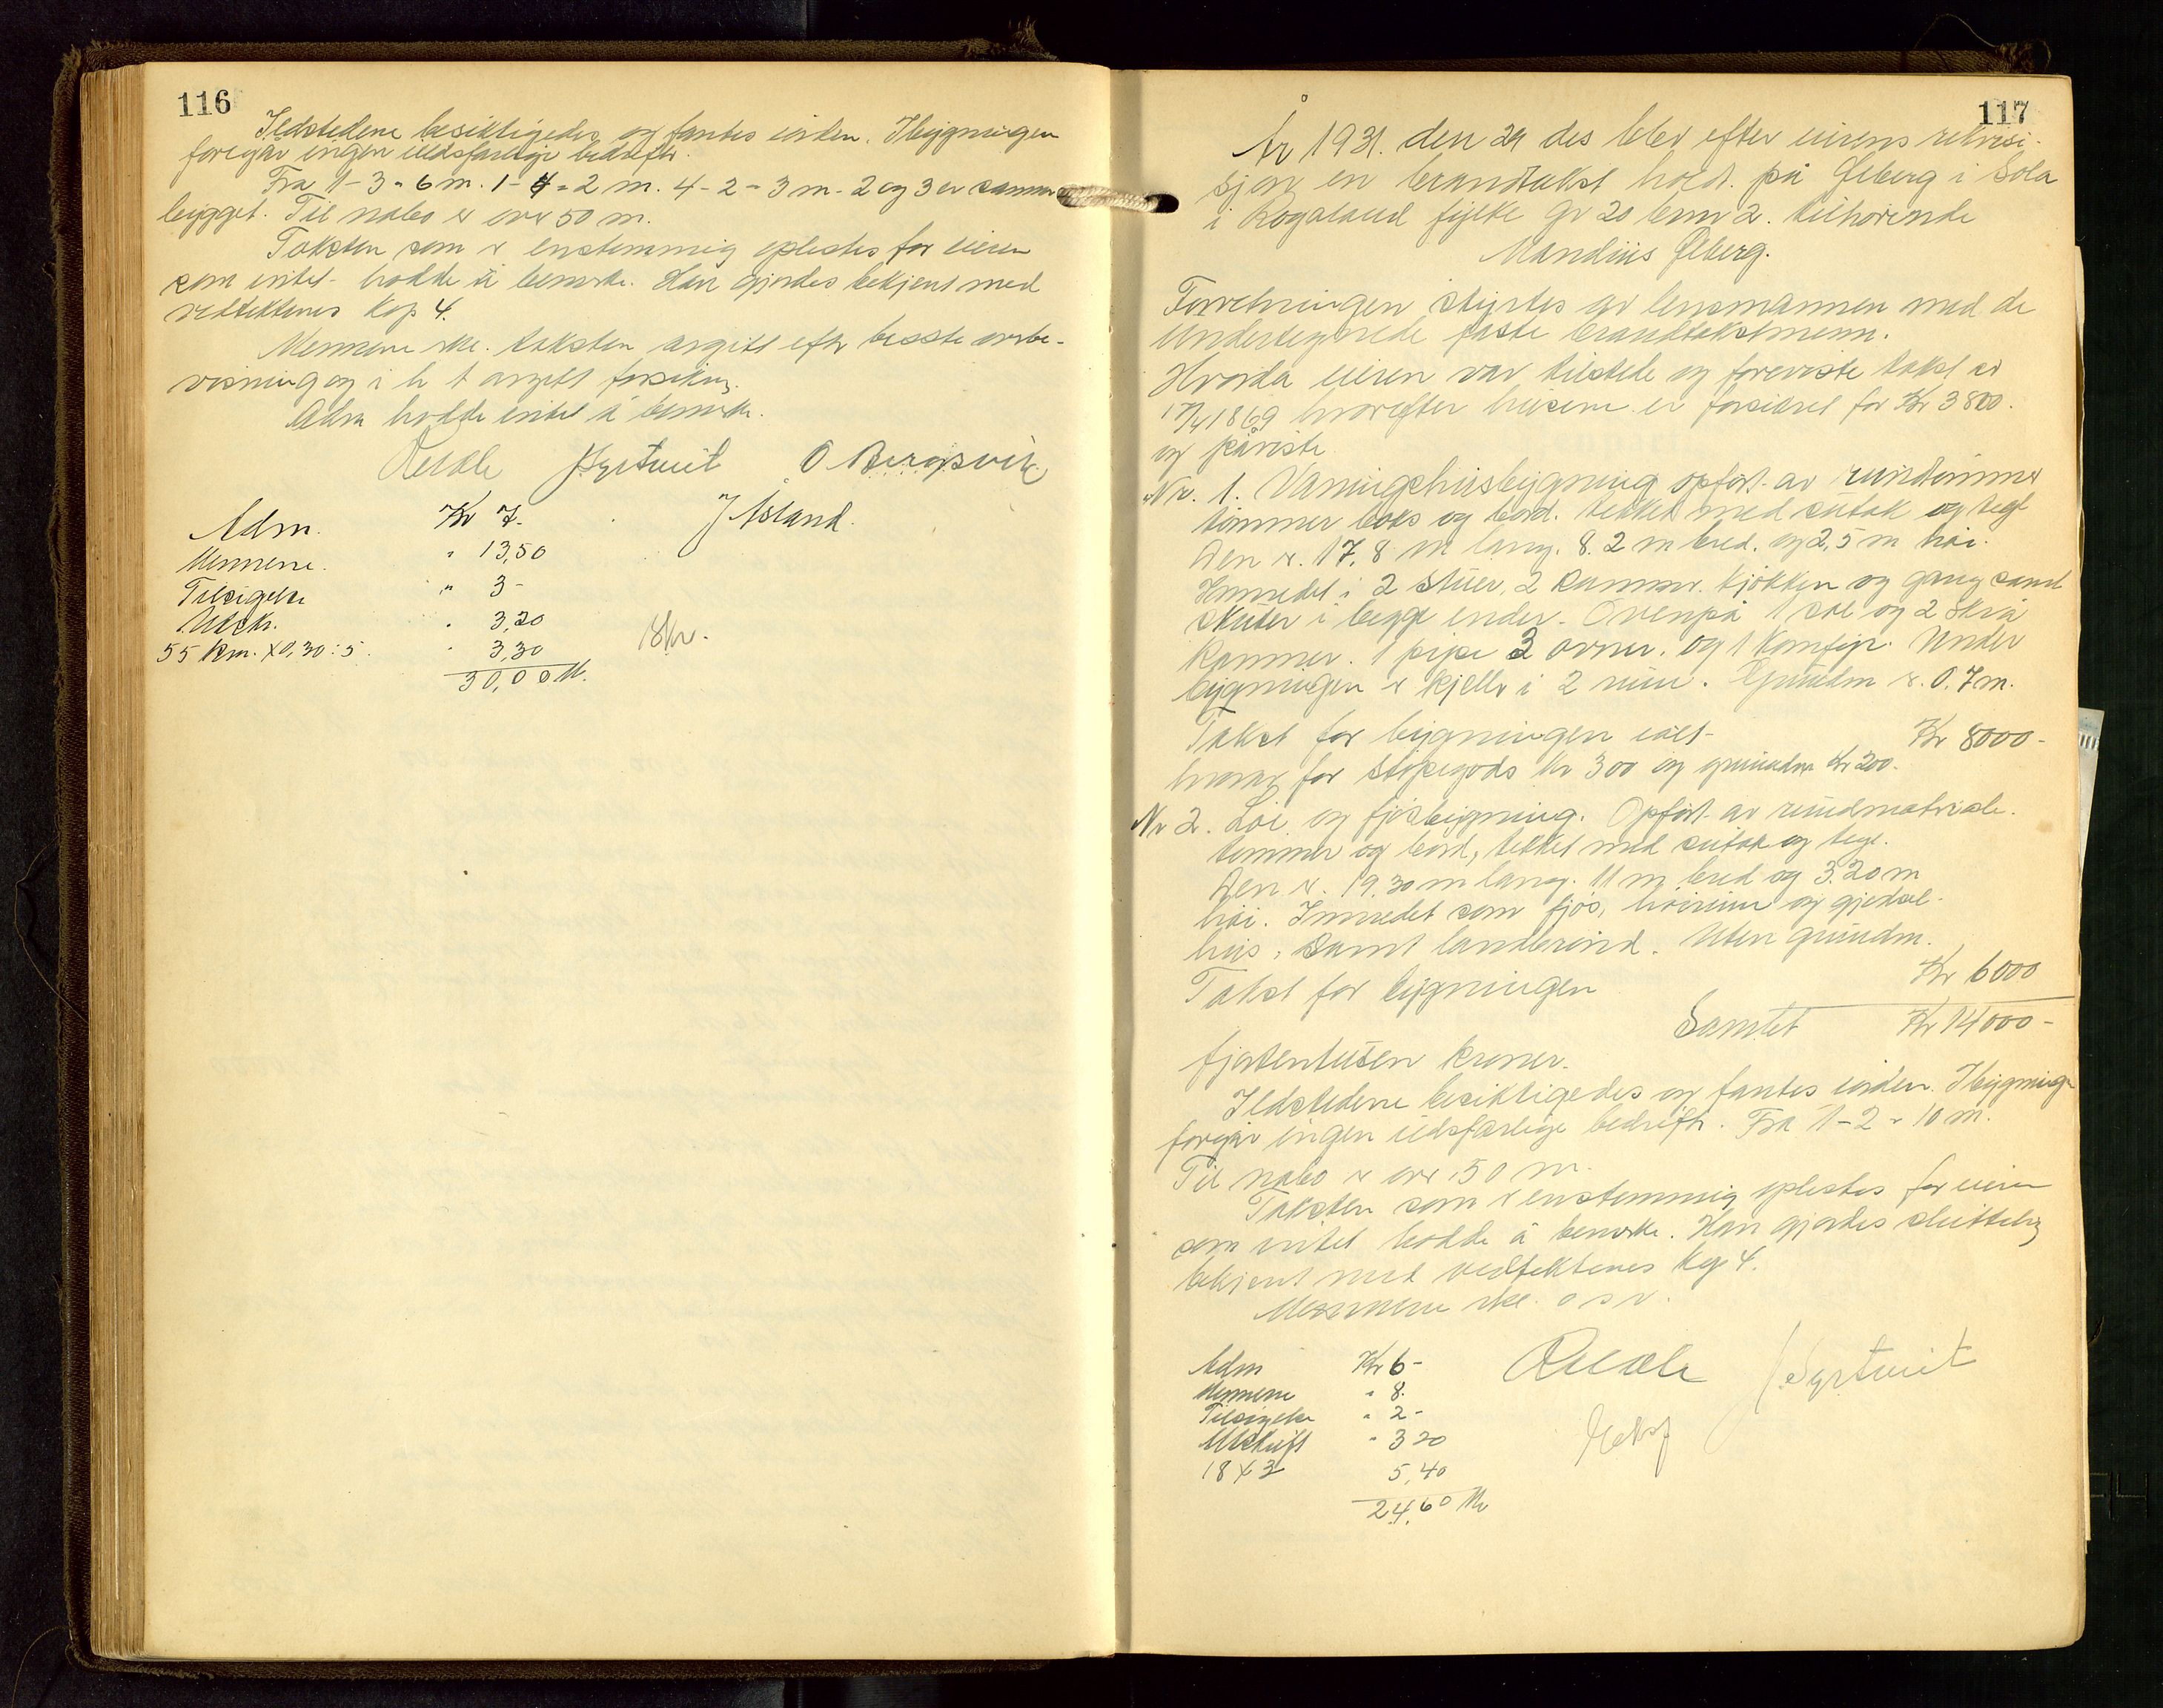 116
Ildstedene besiktigedes og fantes iorden. I bygningen
foregår ingen ildsfarlige bedrifter.
Fra 1-3 = 6 m. 1-4 = 2 m. 4-2 = 3 m. 2 og 3 er sammen
bygget. Til nabo er over 50 m.
Taksten som er enstemmig oplestes for eieren
som intet hadde å bemerke. Han gjordes bekjent med
vedtektenes Kap 4.
Mennene erkl. taksten avgitt efter beste overbe-
visning og i h t avgitt forsikring.
Adm hadde intet å bemerke.
O Bergsvik
J Åsland
Adm. Kr 7-
Mennene. " 13,50
Tilsigelse " 3-
Utskr. " 3,20
55 km. x 0,30 : 5. " 3,30
30,00 Kr.
18 kr.
117
År 1931. den 29 des blev efter eierens rekvisi-
sjon en branntakst holdt på Ølberg i Sola
i Rogaland fylke gr 20 bnr 2. tilhørende
Mandius Ølberg.
Forretningen styrtes av lensmannen med de
undertegnede faste branntakstmenn.
Hvorda eieren var tilstede og foreviste takst av
1869 hvorefter husene er forsikret for Kr 3800.
og påviste
Nr. 1. Våningshusbygning opført av rundtømmer
tømmer boks og bord. tekket med sutak og tegl
Den er. 17,8 m lang. 8.2 m bred. og 2,5 m høi.
Innredet i 2 stuer, 2 kammer. kjøkken og gang samt
skuter i begge ender. Ovenpå 1 sal og 2 skrå
kammer. 1 pipe 3 ovner. og 1 komfyr. Under
bygningen er kjeller i 2 rum. Grundm er. 0.7 m.
Takst for bygningen ialt Kr 8000-
hvorav for støpegods kr 300 og grundm kr 200.
Nr 2. Løe og fjøsbygning. Opført av rundmateriale.
tømmer og bord, tekket med sutak og tegl.
Den er. 19.30 m lang. 11 m bred og 3.20 m
høi. Innredet som fjøs, høirum og gjødsel-
hus, samt landbrind. Uten grundm.
Takst for bygningen Kr 6000
Samlet Kr 14000-
fjortentusen kroner.
Ildstedene besiktigedes og fantes iorden. I bygningen
foregår ingen ildsfarlige bedrifter. Fra 1-2 = 10 m.
Til nabo er over 50 m.
Taksten som er enstemmig oplestes for eieren
som intet hadde å bemerke. Han gjordes sluttelig
bekjent med vedtektenes Kap 4.
Mennene erkl. o s v.
Adm Kr 6-
Mennene " 8.
Tilsigelse " 2-
Utskrift " 3 20
18 x 3 5,40
24,60 Kr